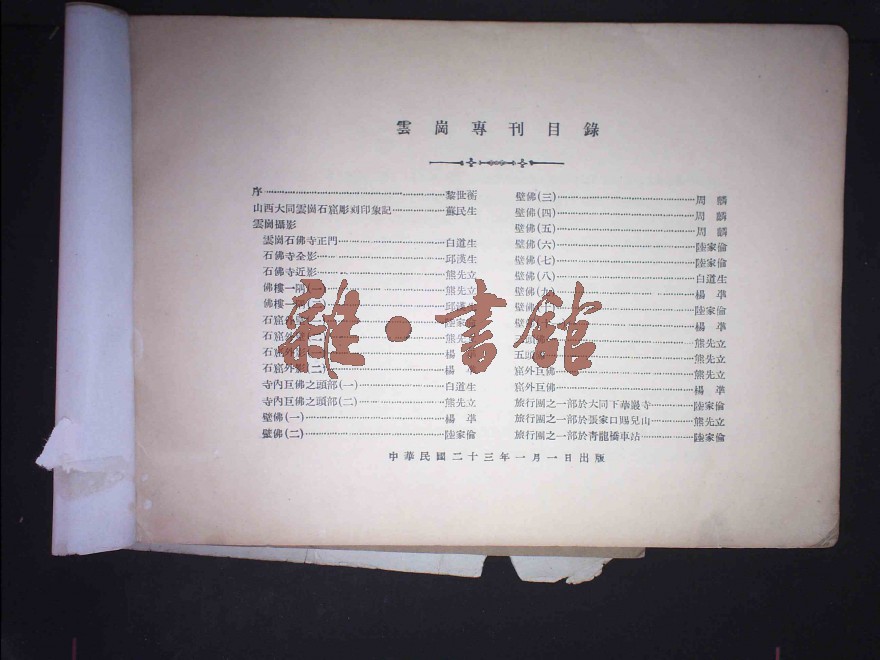 雲崗專刊目錄
序……黎世蘅
山西大同雲崗石窟彫刻印象記……蘇民生
雲崗攝影
雲崗石佛寺正門……白道生
石佛寺全影……邱漢生
石佛寺近影……熊先立
佛樓一隅(一)……熊先立
佛樓一……邱漢生
石窟……陸家
石窟外……熊先
石窟外影(一)……楊準
石窟外影(二)……楊準
寺內巨佛之頭部(一)……白道生
寺內巨佛之頭部(二)……熊先立
壁佛(一)……楊準
壁佛(二)……陸家倫
壁佛(三)……周麟
壁佛(四)……周麟
壁佛(五)……周麟
壁佛(六)……陸家倫
壁佛(七)……陸家倫
壁佛(八)……白道生
壁佛(九)……楊準
壁佛(十)……陸家倫
壁……楊準
……熊先立
五頭……熊先立
窟外巨佛……熊先立
窟外巨佛……楊準
旅行團之一部於大同下華嚴寺……陸家倫
旅行團之一部於張家口賜兒山……熊先立
旅行團之一部於青龍橋車站……陸家倫
中華民國二十三年一月一日出版
雜·書館